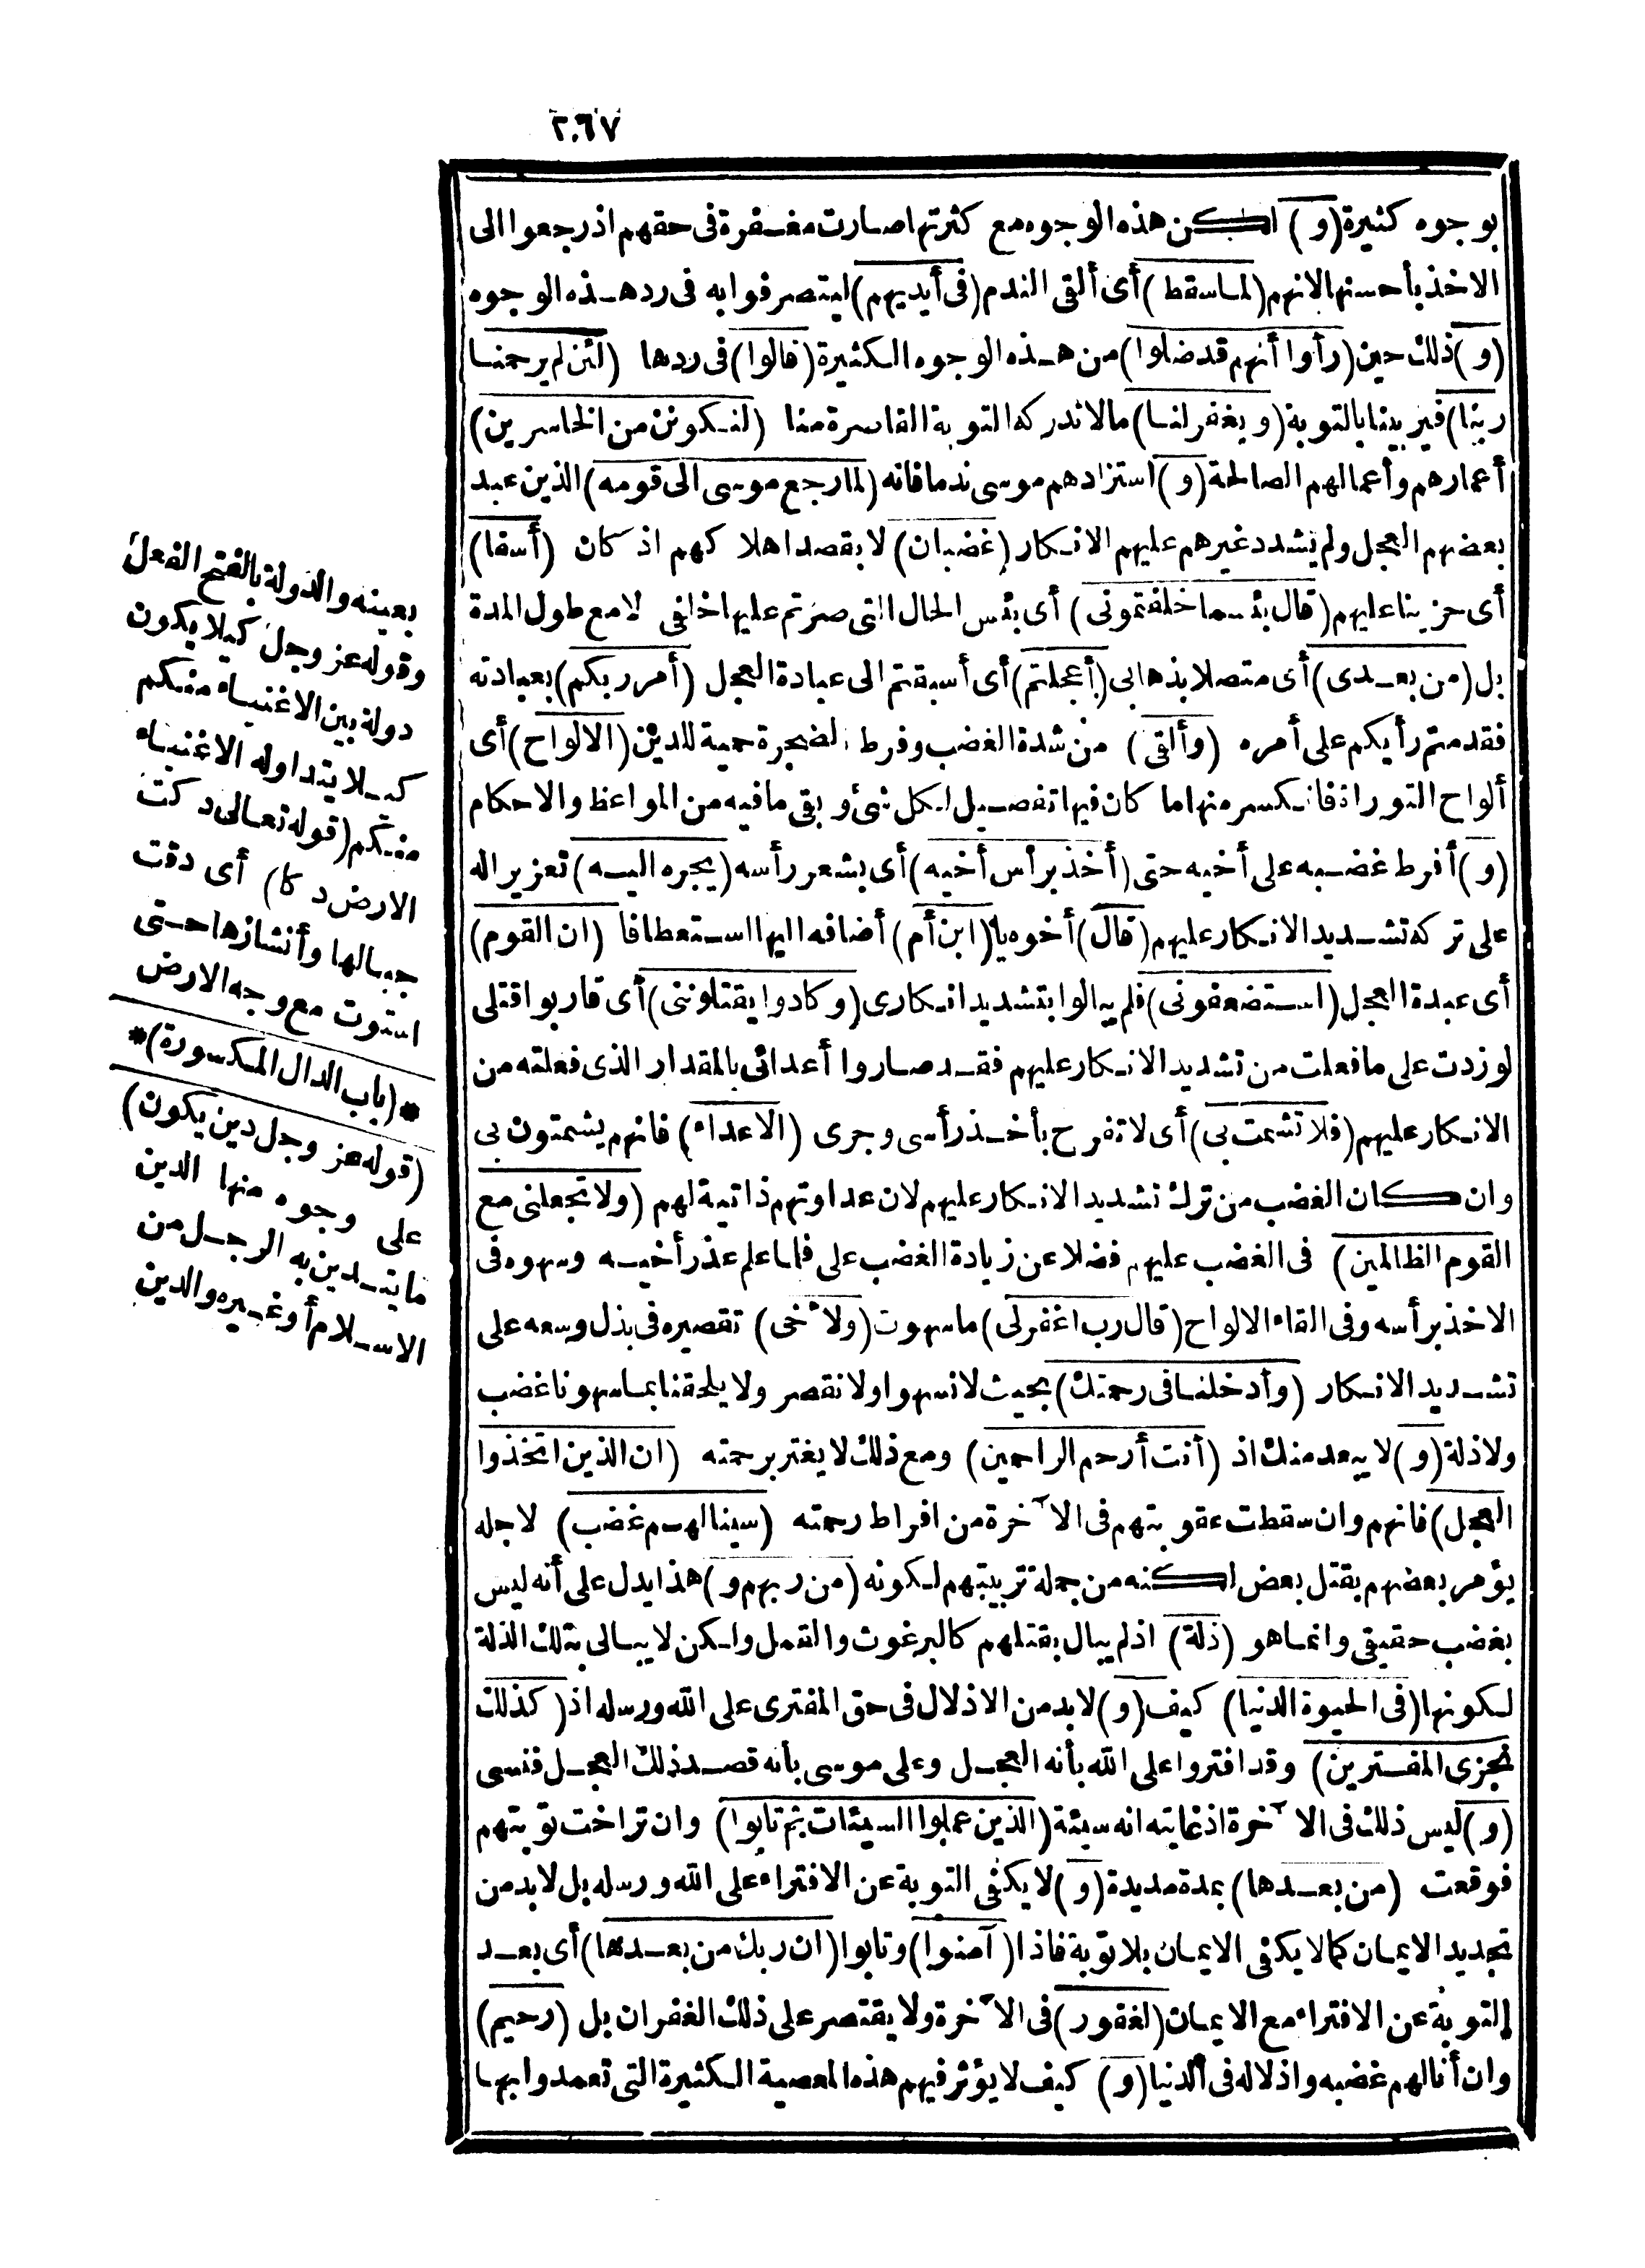 ٢٦٧
بوجوه كثيرة (و) لكن هذه الوجوه مع كثرتها صارت مغفرة فى حقهم اذ رجعوا الى
الاخذ بأحسنها لانهم (لما سقط) أى ألقى الندم (فى أيديهم) ليتصرفوا به فى رد هذه الوجوه
(و) ذلك حين (رأوا أنهم قد ضلوا) من هذه الوجوه الكثيرة (قالوا) فى ردها (لئن لم يرحمنا
ربنا) فيربينا بالتوبة (ويغفر لنا) مالا تدركه التوبة القاصرة منا (لنكونن من الخاسرين)
أعمارهم وأعمالهم الصالحة (و) استزادهم موسى ندما فانه (لما رجع موسى الى قومه) الذين عبد
بعضهم العجل ولم يشدد غيرهم عليهم الانكار (غضبان) لا بقصد اهلاكهم اذ كان (أسفا)
أى حزينا عليهم (قال بئسما خلفتمونى) أى بئس الحال التى صرتم عليها خلافى لا مع طول المدة
بل (من بعدى) أى متصلا بذهابى (أعجلتم) أى أسبقتم الى عبادة العجل (أمر ربكم) بعبادته
فقدمتم رأيكم على أمره (وألقى) من شدة الغضب وفرط الضجرة حمية للدين (الالواح) أى
ألواح التوراة فانكسر منها ما كان فيها تفصيل لكل شئ وبقى ما فيه من المواعظ والاحكام
(و) أفرط غضبه على أخيه حتى (أخذ برأس أخيه) أى بشعر رأسه (يجره اليه) تعزير اله
على تركه تشديد الانكار عليهم (قال) أخوه يا (ابن أم) أضافه اليها استعطافا (ان القوم)
أى عبدة العجل (استضعفونى) فلم يبالوا بتشديد انكارى (وكادوا يقتلوننى) أى قاربوا قتلى
لو زدت على ما فعلت من تشديد الانكار عليهم فقد صاروا أعدائى بالمقدار الذى فعلته من
الانكار عليهم (فلا تشمت بى) أى لا تفرح بأخذ رأسى وجرى (الاعداء) فانهم يشمتون بى
وان كان الغضب من ترك تشديد الانكار عليهم لان عداوتهم ذاتية لهم (ولا تجعلنى مع
القوم الظالمين) فى الغضب عليهم فضلا عن زيادة الغضب على فلما علم عذر أخيه وسهوه فى
الاخذ برأسه وفى القاء الالواح (قال رب اغفر لى) ما سهوت (ولأخى) تقصيره فى بذل وسعه على
تشديد الانكار (وأدخلنا فى رحمتك) بحيث لا نسهو ولا نقصر ولا يلحقنا بما سهونا غضب
ولا ذلة (و) لا يبعد منك اذ (أنت أرحم الراحمين) ومع ذلك لا يغتر برحمته (ان الذين اتخذوا
العجل) فانهم وان سقطت عقوبتهم فى الآخرة من افراط رحمته (سينالهم غضب) لاجله
يؤمر بعضهم بقتل بعض لكنه من جملة تربيتهم لكونه (من ربهم و) هذا يدل على أنه ليس
بغضب حقيقى وانما هو (ذلة) اذ لم يبال بقتلهم كالبرغوث والقمل ولكن لا يبالى بتلك الذلة
لكونها (فى الحيوة الدنيا) كيف (و) لا بد من الاذلال فى حق المفترى على الله ورسله اذ (كذلك
نجزى المفترين) وقد افتروا على الله بأنه العجل وعلى موسى بأنه قصد ذلك العجل فنسى
(و) ليس ذلك فى الآخرة اذ غايته انه سيئة (الذين عملوا السيئات ثم تابوا) وان تراخت توبتهم
فوقعت (من بعدها) بمدة مديدة (و) لا يكفى التوبة عن الافتراء على الله ورسله بل لا بد من
تجديد الايمان كما لا يكفى الايمان بلا توبة فاذا (آمنوا) وتابوا (ان ربك من بعدها) أى بعد
التوبة عن الافتراء مع الايمان (لغفور) فى الآخرة ولا يقتصر على ذلك الغفران بل (رحيم)
وان أنالهم غضبه واذلاله فى الدنيا (و) كيف لا يؤثر فيهم هذه المعصية الكثيرة التى تعمدوا بها
بعينه والدولة بالفتح الفعل
وقوله عز وجل كيلا يكون
دولة بين الاغنياء منكم
كيلا يتداوله الاغنياء
منكم (قوله تعالى دكت
الارض دكا) أى دقت
جبالها وأنشازها حتى
استوت مع وجه الارض
*(باب الدال المكسورة)*
(قوله عز وجل دين يكون)
على وجوه منها الدين
ما يتدين به الرجل من
الاسلام أو غيره والدين